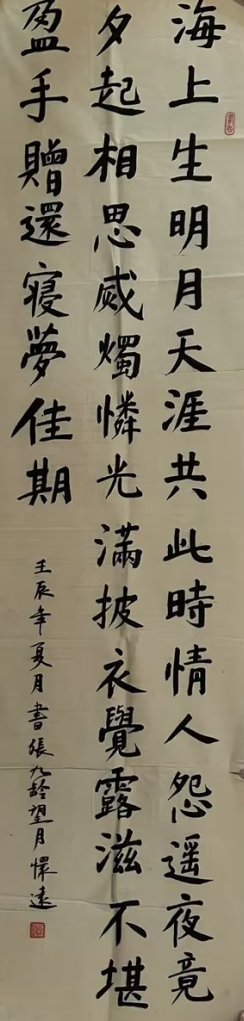 海上生明月天涯共此時情人怨遥夜竟
夕起相思烕燭憐光滿披衣覺露滋不堪
盈手贈還寢夢佳期
壬辰年夏月書張九齡望月懷遠